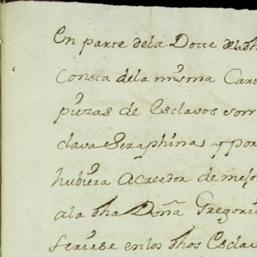 En parte dela Dotte dha
Consta dela misma Car
piezas de Esclavos son
clava Seraphina, y por
hubiera Acreedor de mejo
ala dha Doña Gregori
ferirse enlos dhos Escla